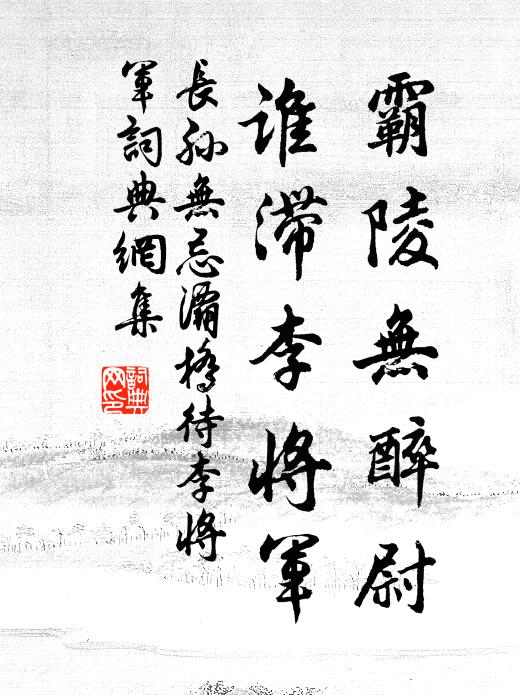 霸陵無醉尉
誰滯李將軍
長孫無忌灞橋待李將
軍詞典網集
詞典
网印